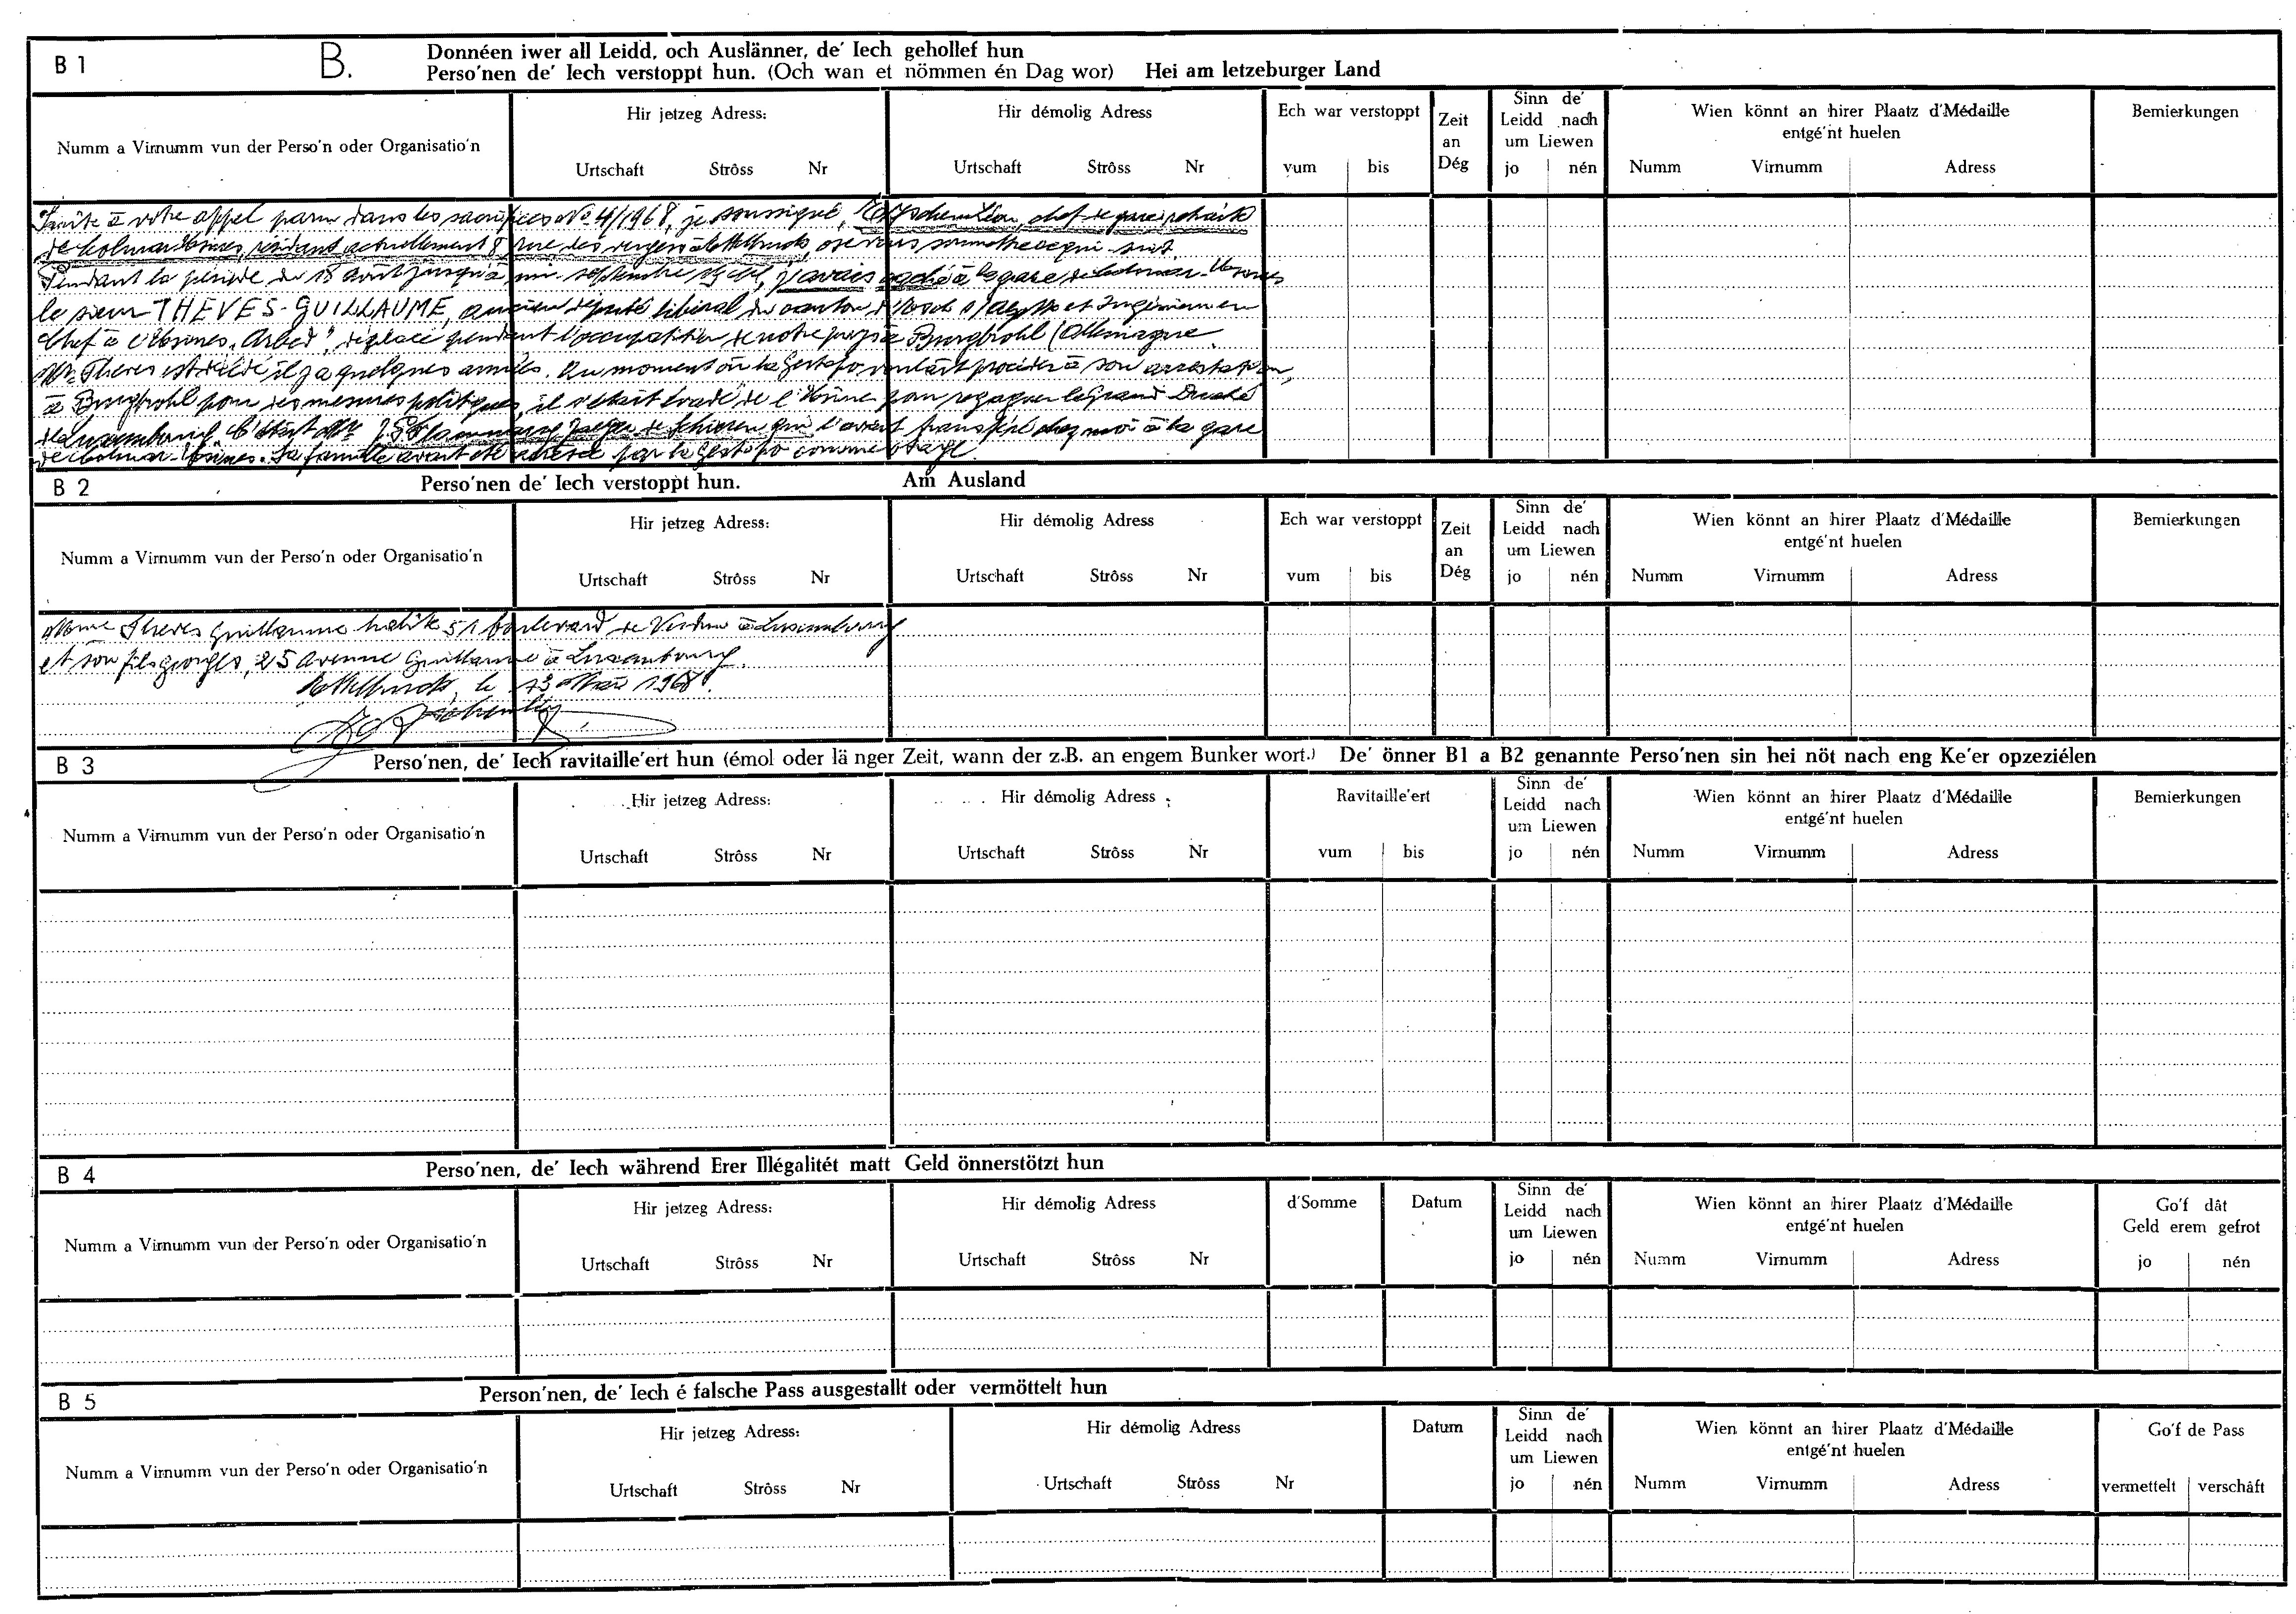 B 1
B.
Donnéen iwer all Leidd, och Auslänner, de' Iech gehollef hun
Perso'nen de' Iech verstoppt hun. (Och wan et nömmen én Dag wor) Hei am letzeburger Land
Numm a Virnumm vun der Perso'n oder Organisatio'n
Hir jetzeg Adress:
Urtschaft Strôss Nr
Hir démolig Adress
Urtschaft Strôss Nr
Ech war verstoppt
vum bis
Zeit
an
Dég
Sinn de'
Leidd nach
um Liewen
jo nén
Wien könnt an hirer Plaatz d'Médaille
entgé'nt huelen
Numm Virnumm Adress
Bemierkungen
Suite à votre appel paru dans les sacrifices No 4/1968, je soussigné, chef de gare retraité
de Colmar-Usines, résidant actuellement 8 rue des vergers à Ettelbruck, ose vous soumettre ce qui suit.
Pendant la période du 18 août jusqu'à mi-septembre j'avais caché à la gare de Colmar-Usines
le sieur THEVES-GUILLAUME, ancien député libéral du canton d'Esch s/Alzette et Ingénieur en
Chef à l'Usines "Arbed", déplacé pendant l'occupation de notre pays à Burgbrohl (Allemagne.
Mr. Theves est décédé il y a quelques années. Au moment où la Gestapo voulait procéder à son arrestation,
à Burgbrohl pour des mesures politiques, il s'était évadé de l'Usine pour regagner le Grand Duché
de Luxembourg. C'était Mr de Schieren qui l'avait transféré chez moi à la gare
de Colmar-Usines. Sa famille avait été par la Gestapo comme otage
B 2
Perso'nen de' Iech verstoppt hun. Am Ausland
Numm a Virnumm vun der Perso'n oder Organisatio'n
Hir jetzeg Adress:
Urtschaft Strôss Nr
Hir démolig Adress
Urtschaft Strôss Nr
Ech war verstoppt
vum bis
Zeit
an
Dég
Sinn de'
Leidd nach
um Liewen
jo nén
Wien könnt an hirer Plaatz d'Médaille
entgé'nt huelen
Numm Virnumm Adress
Bemierkungen
Mme Theves Guillaume habite 51 boulevard de Verdun à Luxembourg
et son fils georges, 25 Avenue Guillaume à Luxembourg.
Ettelbruck, le 13 Mai 1968.
B 3
Perso'nen, de' Iech ravitaille'ert hun (émol oder länger Zeit, wann der z.B. an engem Bunker wort.) De' önner B1 a B2 genannte Perso'nen sin hei nöt nach eng Ke'er opzeziélen
Numm a Virnumm vun der Perso'n oder Organisatio'n
Hir jetzeg Adress:
Urtschaft Strôss Nr
Hir démolig Adress
Urtschaft Strôss Nr
Ravitaille'ert
vum bis
Sinn de'
Leidd nach
um Liewen
jo nén
Wien könnt an hirer Plaatz d'Médaille
entgé'nt huelen
Numm Virnumm Adress
Bemierkungen
B 4
Perso'nen, de' Iech während Erer Illégalitét matt Geld önnerstötzt hun
Numm a Virnumm vun der Perso'n oder Organisatio'n
Hir jetzeg Adress:
Urtschaft Strôss Nr
Hir démolig Adress
Urtschaft Strôss Nr
d'Somme
Datum
Sinn de'
Leidd nach
um Liewen
jo nén
Wien könnt an hirer Plaatz d'Médaille
entgé'nt huelen
Numm Virnumm Adress
Go'f dât
Geld erem gefrot
jo nén
B 5
Person'nen, de' Iech é falsche Pass ausgestallt oder vermöttelt hun
Numm a Virnumm vun der Perso'n oder Organisatio'n
Hir jetzeg Adress:
Urtschaft Strôss Nr
Hir démolig Adress
Urtschaft Strôss Nr
Datum
Sinn de'
Leidd nach
um Liewen
jo nén
Wien könnt an hirer Plaatz d'Médaille
entgé'nt huelen
Numm Virnumm Adress
Go'f de Pass
vermettelt verschâft